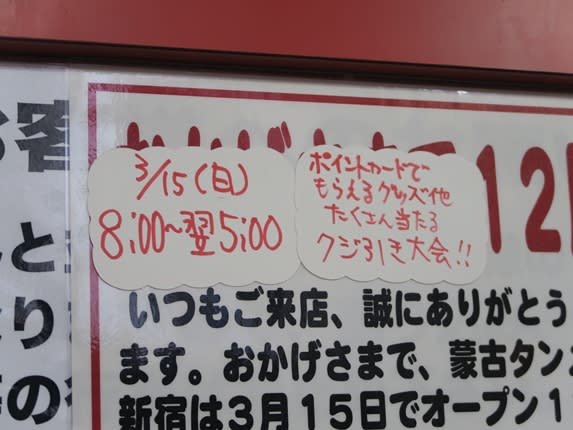 3/15(日)
8:00～翌5:00
ポイントカードで
もらえるグッズ他
たくさん当たる
クジ引き大会!!
12
いつもご来店、誠にありがとう
ます。おかげさまで、蒙古タン
新宿は3月15日でオープン1